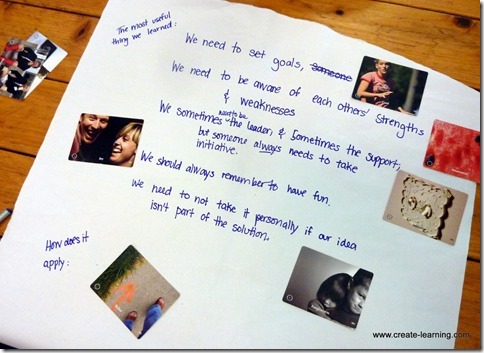 The most useful
thing we learned:
We need to set goals, someone
We need to be aware of each others' strengths
& weaknesses
We sometimes need to be the leader, & sometimes the support,
but someone always needs to take
initiative.
We should always remember to have fun.
We need to not take it personally if our idea
isn't part of the solution.
How does it
apply:
www.create-learning.com